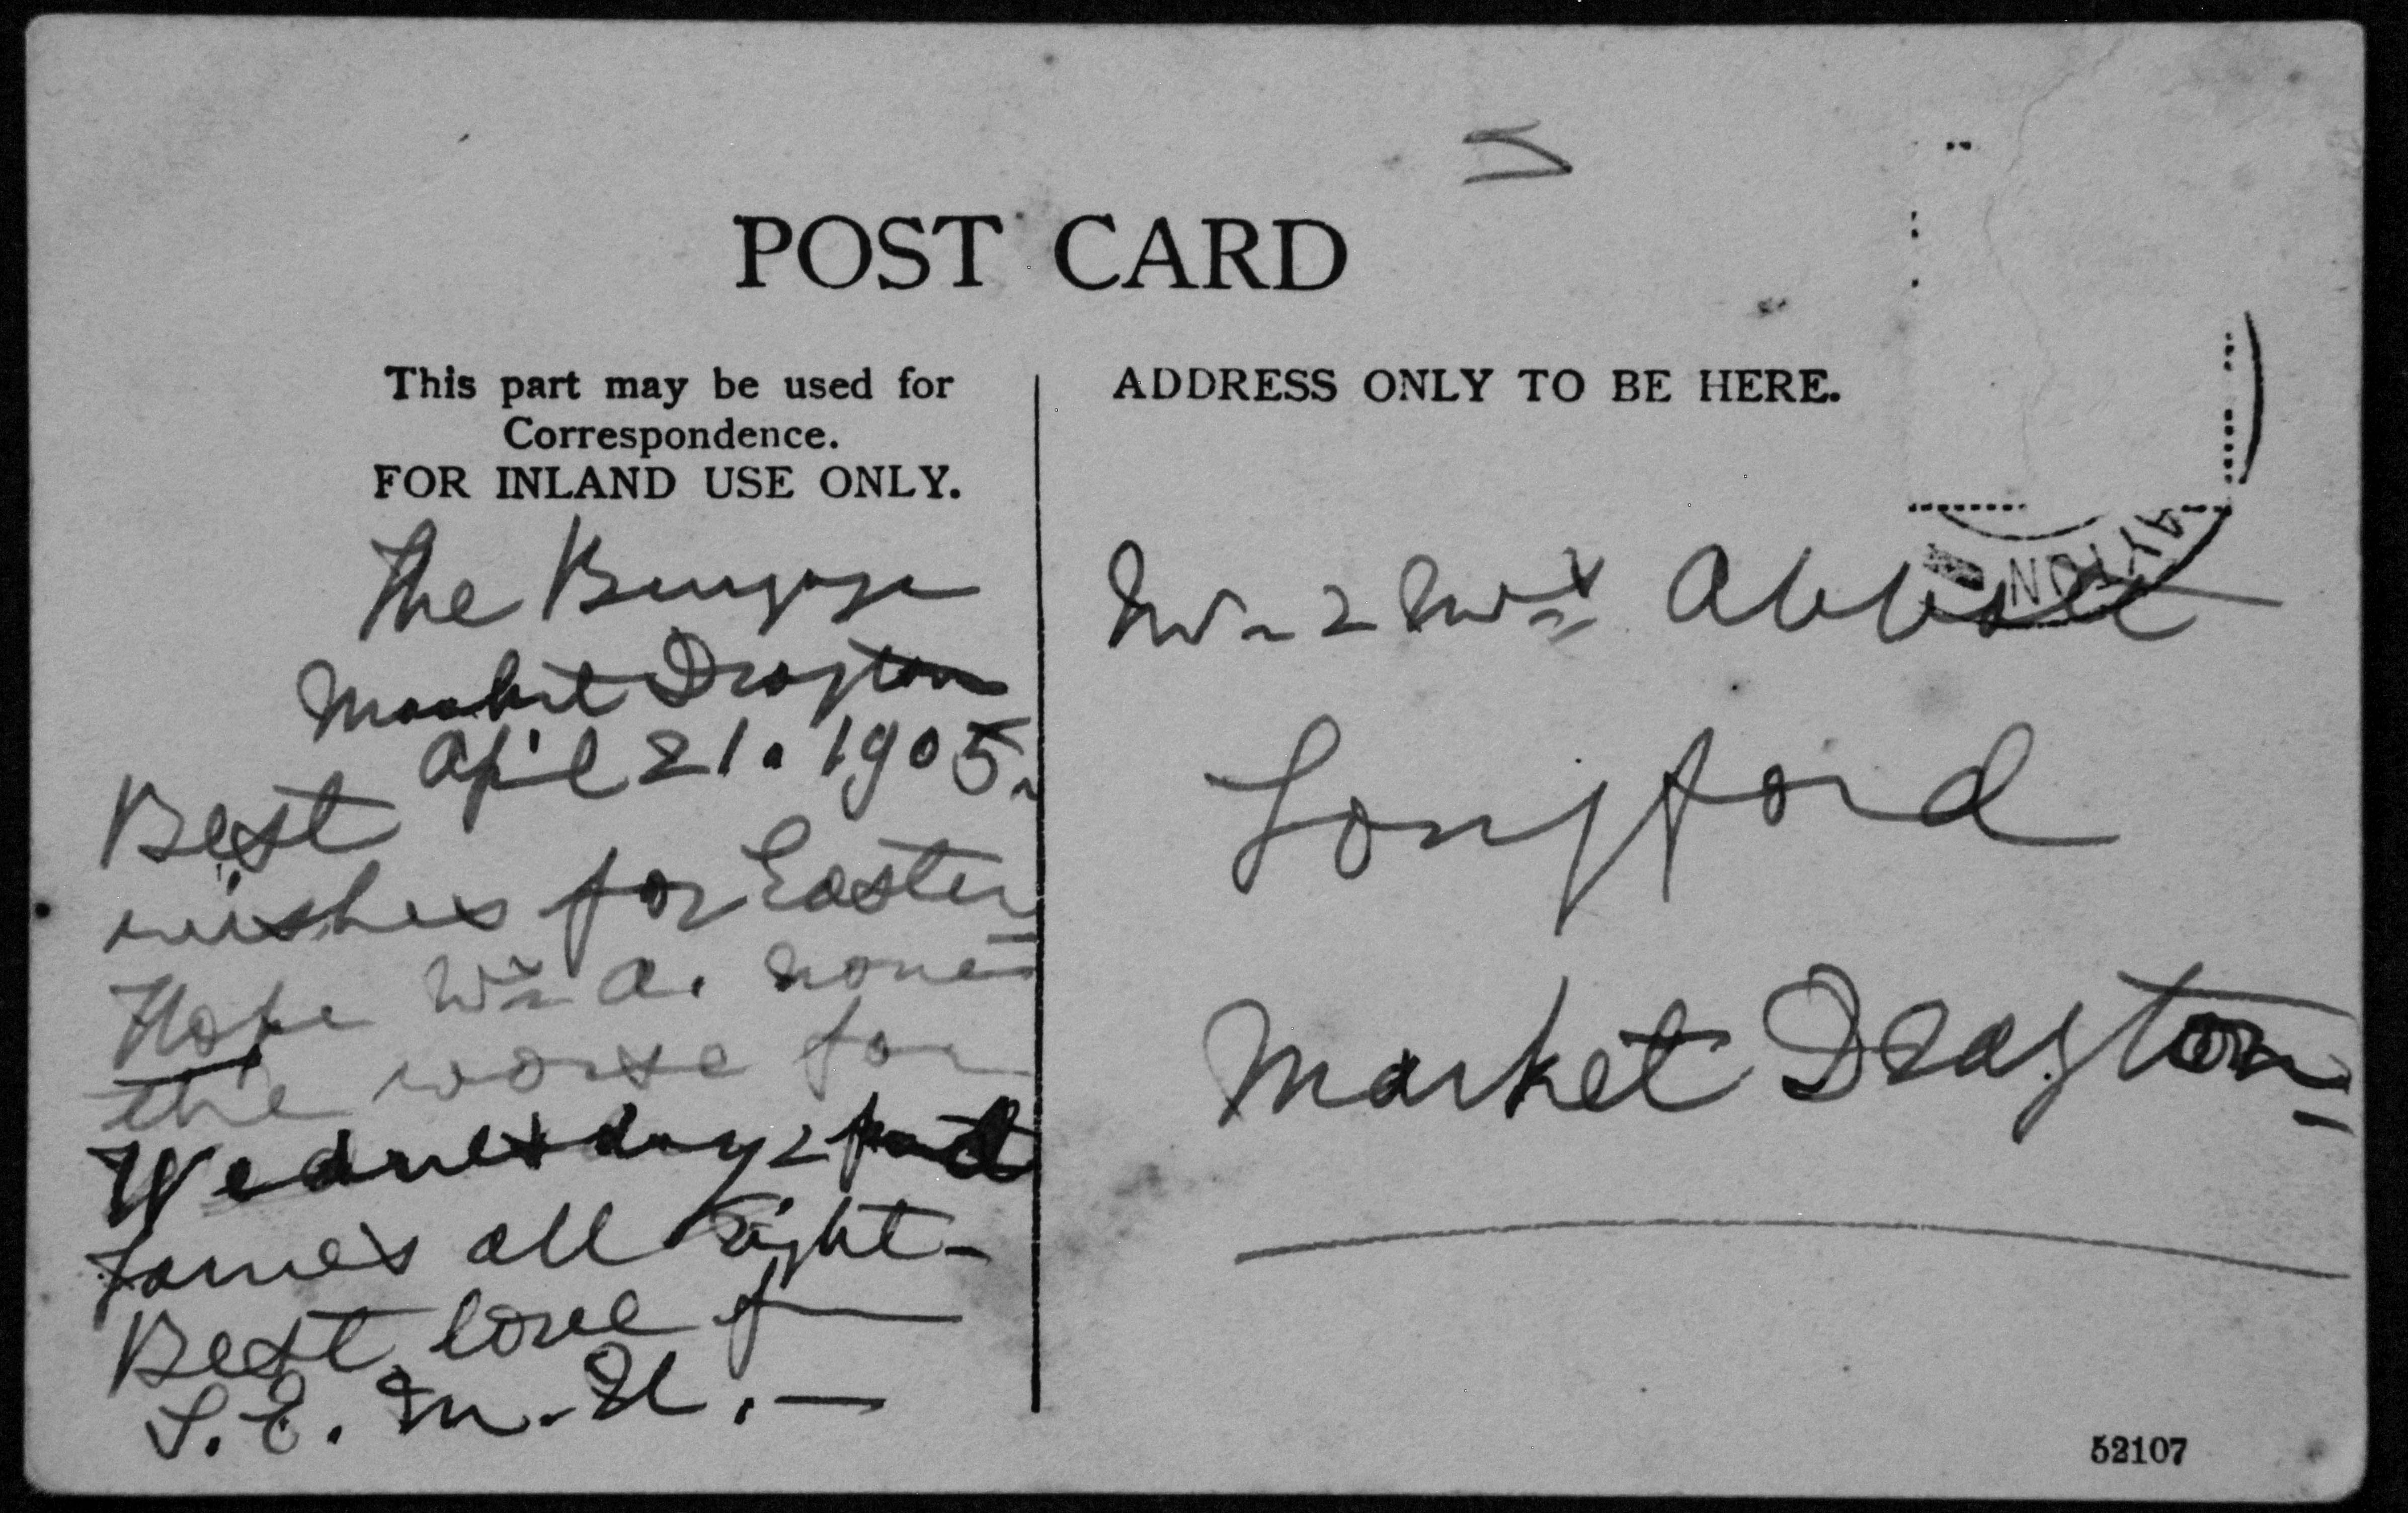 POST CARD
This part may be used for
Correspondence.
FOR INLAND USE ONLY.
The
Market Drayton
April 21. 1905.
Best
wishes for Easter
Hope Mrs A. none
the worse for
Wednesday &
James all right -
Best love
S. E. M. U. —
ADDRESS ONLY TO BE HERE.
Mr & Mrs Abbott
Longford
Market Drayton
52107